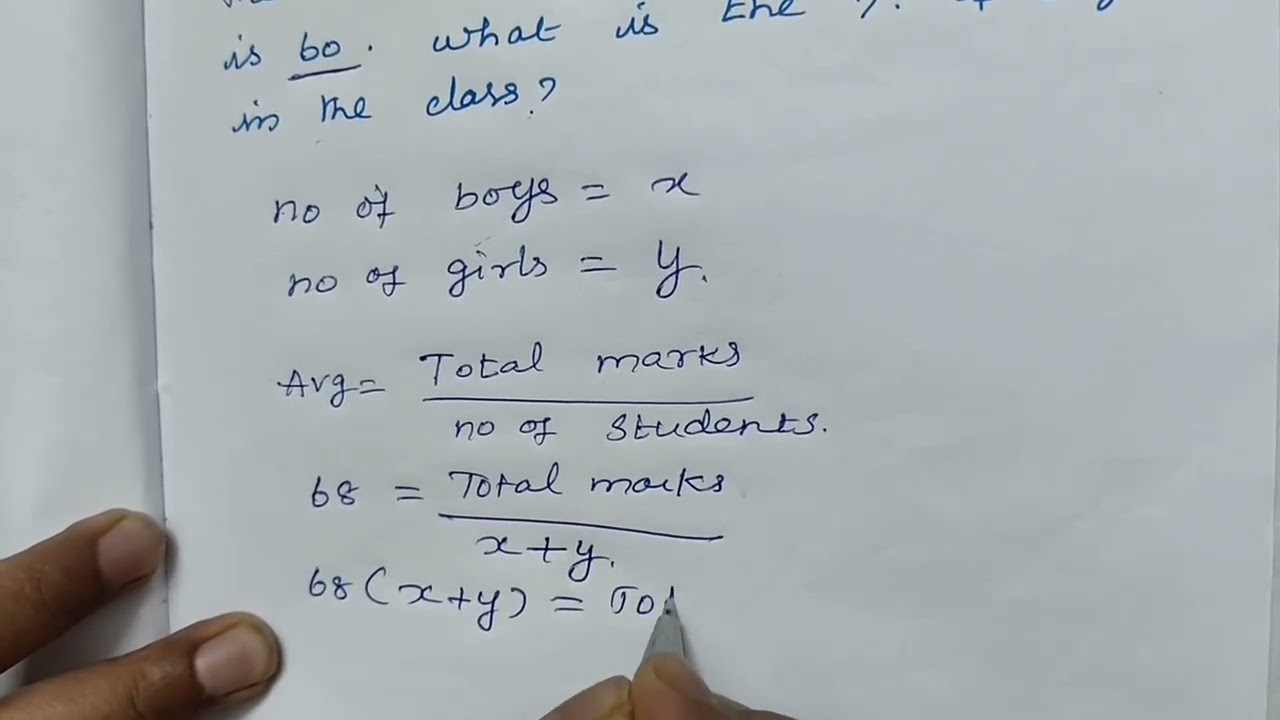 is 60. what is the
in the class?
no of boys = x
no of girls = y.
Avg = Total marks
no of students.
68 = Total marks
x+y.
68(x+y) = Tot